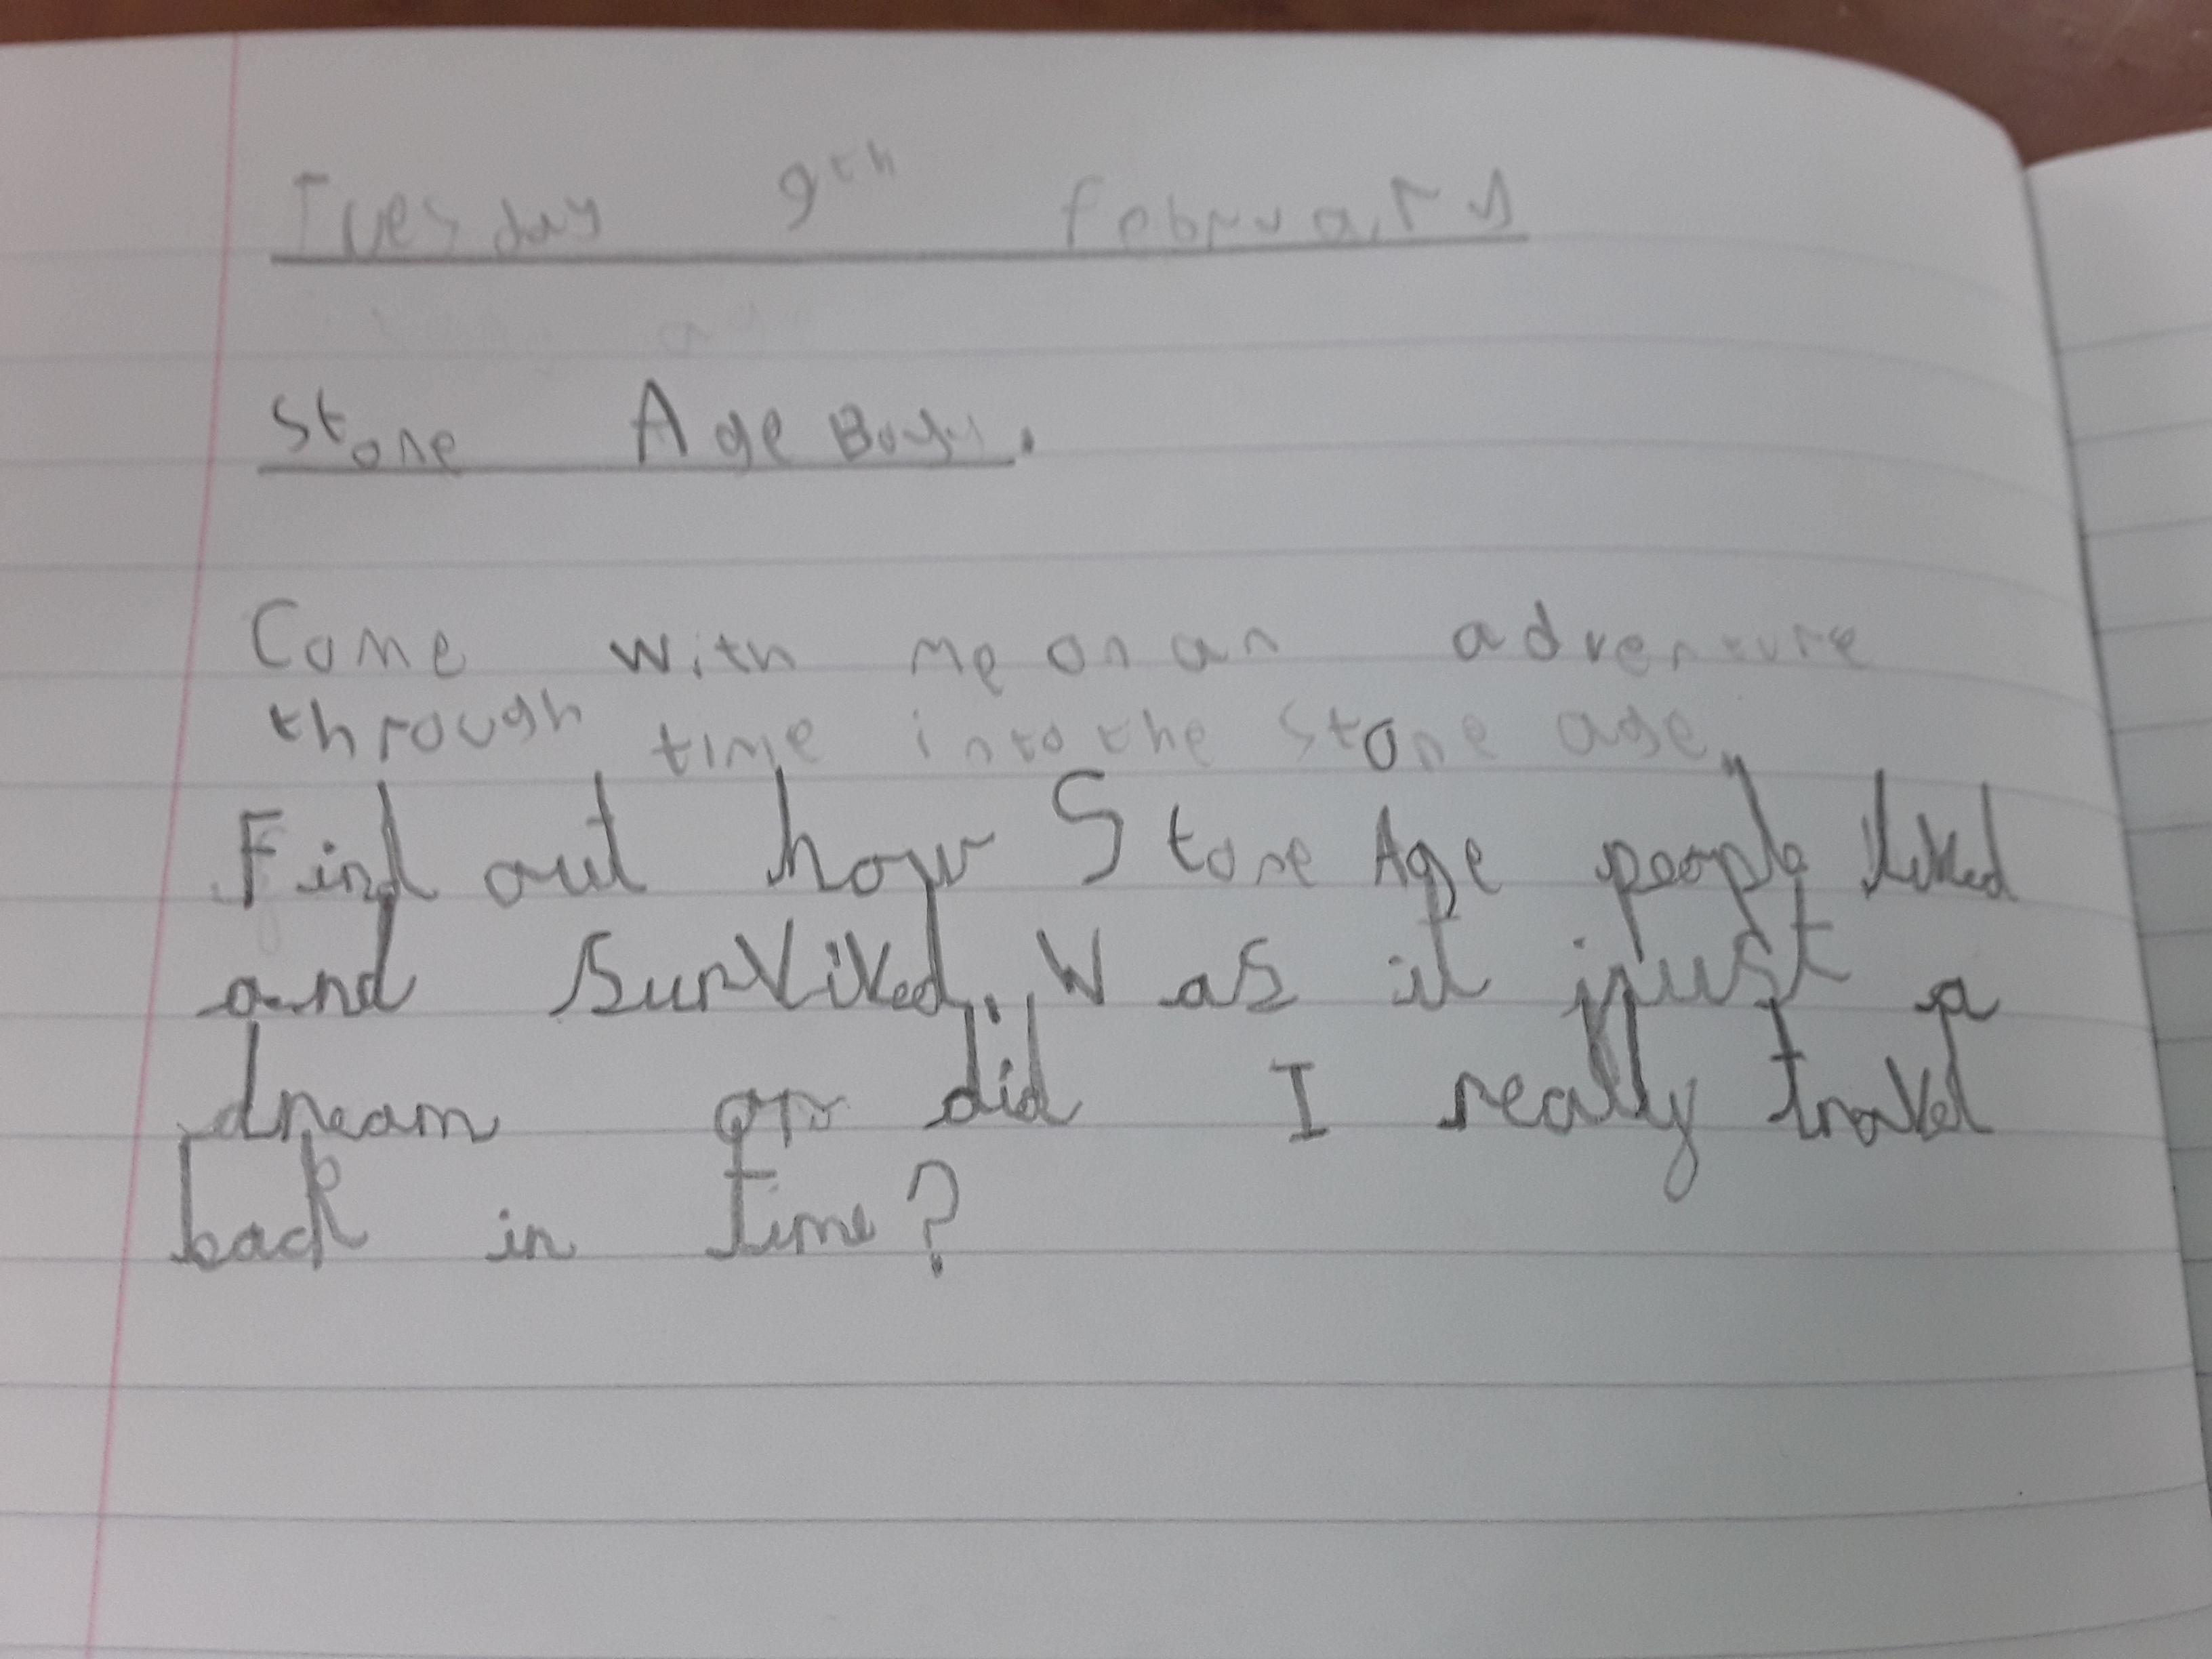 Tuesday 9th february
Stone Age Boy.
Come with me on an adventure
through time into the stone age.
Find out how Stone Age people lived
and survived. Was it just a
dream or did I really travel
back in time?